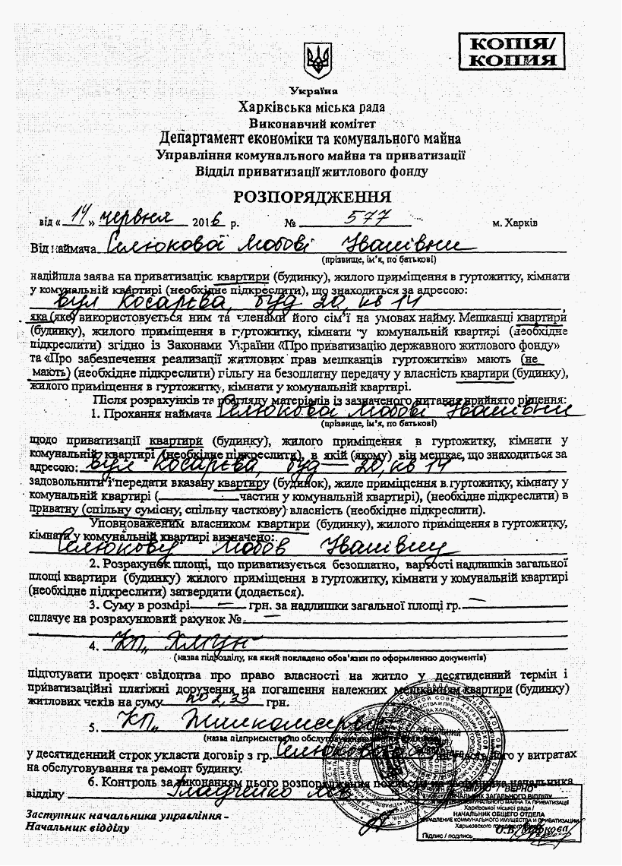 КОПІЯ/
КОПИЯ
Україна
Харківська міська рада
Виконавчий комітет
Департамент економіки та комунального майна
Управління комунального майна та приватизації
Відділ приватизації житлового фонду
РОЗПОРЯДЖЕННЯ
від « 14 » червня 2016 р. № 577 м. Харків
Від наймача Селюкової Любові Іванівни
(прізвище, ім'я, по батькові)
надійшла заява на приватизацію квартири (будинку), жилого приміщення в гуртожитку, кімнати
у комунальній квартирі (необхідне підкреслити), що знаходиться за адресою:
вул Косарєва, буд 20, кв 14
яка (яке) використовується ним та членами його сім'ї на умовах найму. Мешканці квартири
(будинку), жилого приміщення в гуртожитку, кімнати у комунальній квартирі (необхідне
підкреслити) згідно із Законами України «Про приватизацію державного житлового фонду»
та «Про забезпечення реалізації житлових прав мешканців гуртожитків» мають (не
мають) (необхідне підкреслити) пільгу на безоплатну передачу у власність квартири (будинку),
жилого приміщення в гуртожитку, кімнати у комунальній квартирі.
Після розрахунків та розгляду матеріалів із зазначеного питання прийнято рішення:
1. Прохання наймача Селюкової Любові Іванівни
(прізвище, ім'я, по батькові)
щодо приватизації квартири (будинку), жилого приміщення в гуртожитку, кімнати у
комунальній квартирі (необхідне підкреслити), в якій (якому) він мешкає, що знаходиться за
адресою: вул Косарєва, буд 20, кв 14
задовольнити і передати вказану квартиру (будинок), жиле приміщення в гуртожитку, кімнату у
комунальній квартирі ( частин у комунальній квартирі), (необхідне підкреслити) в
приватну (спільну сумісну, спільну часткову) власність (необхідне підкреслити).
Уповноваженим власником квартири (будинку), жилого приміщення в гуртожитку,
кімнати у комунальній квартирі визначено:
Селюкову Любов Іванівну
2. Розрахунок площі, що приватизується безоплатно, вартості надлишків загальної
площі квартири (будинку) жилого приміщення в гуртожитку, кімнати у комунальній квартирі
(необхідне підкреслити) затвердити (додається).
3. Суму в розмірі — грн. за надлишки загальної площі гр. —
сплачує на розрахунковий рахунок № —
4. КП„
(назва підрозділу, на який покладено обов'язки по оформленню документів)
підготувати проект свідоцтва про право власності на житло у десятиденний термін і
приватизаційні платіжні доручення на погашення належних мешканцям квартири (будинку)
житлових чеків на суму грн.
5. КП„ Жилкомсервіс
(назва підприємства по обслуговуванню
у десятиденний строк укласти договір з гр. Селюковою у витратах
на обслуговування та ремонт будинку.
6. Контроль за виконанням цього розпорядження начальника
відділу
Заступник начальника управління -
Начальник відділу
ВІРНО / ВЕРНО
НАЧАЛЬНИК ЗАГАЛЬНОГО ВІДДІЛУ
Харківської міської ради /
НАЧАЛЬНИК ОБЩЕГО ОТДЕЛА
УПРАВЛЕНИЕ КОММУНАЛЬНОГО ИМУЩЕСТВА И ПРИВАТИЗАЦИИ
Підпис / подпись